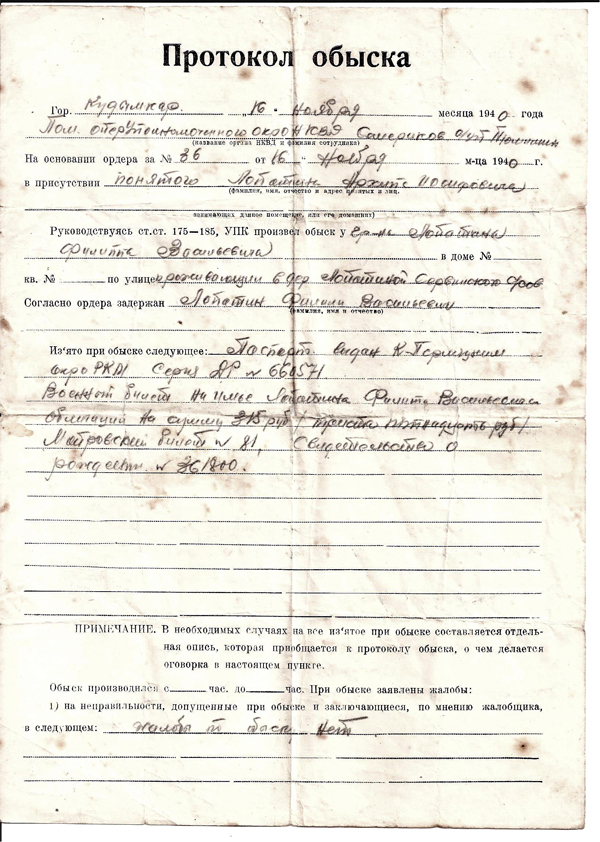 Протокол обыска
Гор. Кудымкар „16 " ноября месяца 1940 года
Пом. оперуполномоченного окро НКВД
(название органа НКВД и фамилия сотрудника)
На основании ордера за № 36 от „16 " Ноября м-ца 1940 г.
в присутствии понятого Лопатина
(фамилия, имя, отчество и адрес понятых и лиц,
занимающих данное помещение, или его домашних)
Руководствуясь ст.ст. 175—185, УПК произвел обыск у Лопатина
Филиппа Васильевича в доме №
кв. № по улице проживающий в дер Лопатиной
Согласно ордера задержан Лопатин Филипп Васильевич
(фамилия, имя и отчество)
Из'ято при обыске следующее: Паспорт выдан К-Пермяцким
окро РКМ Серия № 660571
Военной билет на имя Лопатина Филиппа Васильевича
облигаций на сумму 315 руб / триста пятнадцать руб /
билет № 81, Свидетельства о
рожден. № 361800.
ПРИМЕЧАНИЕ. В необходимых случаях на все из'ятое при обыске составляется отдель-
ная опись, которая приобщается к протоколу обыска, о чем делается
оговорка в настоящем пункте.
Обыск производился с час. до час. При обыске заявлены жалобы:
1) на неправильности, допущенные при обыске и заключающиеся, по мнению жалобщика,
в следующем: жалоб по обыску нет